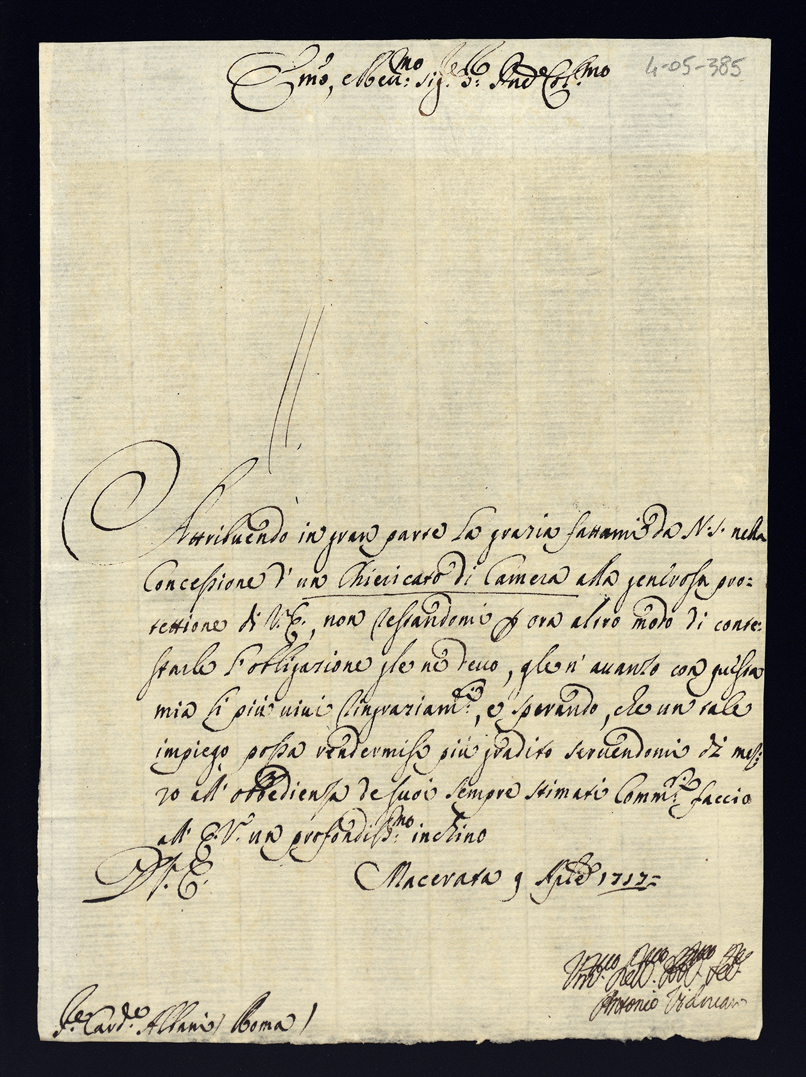 4-05-385
Em͂o, e Reu:mo Sig:r P:ne Col:mo
Attribuendo in gran parte la grazia fattami da N:S: nella
Concessione d'un Chiericato di Camera alla generosa pro=
tettione di V.E:, non restandomi p ora altro modo di conte=
starle l'obligazione gle ne deuo, gle n'auanzo con questa
mia li più uiui ringraziam:ti, e sperando, che un tale
impiego possa rendermisi più gradito seruendomi di mez=
zo all'obbedienza de suoi sempre stimati Comm:di faccio
all'E.V. un profondiss:mo inchino
D.V.E.
Macerata 9 Aple 1717=
Antonio
Sr Card:e Albani / Roma /